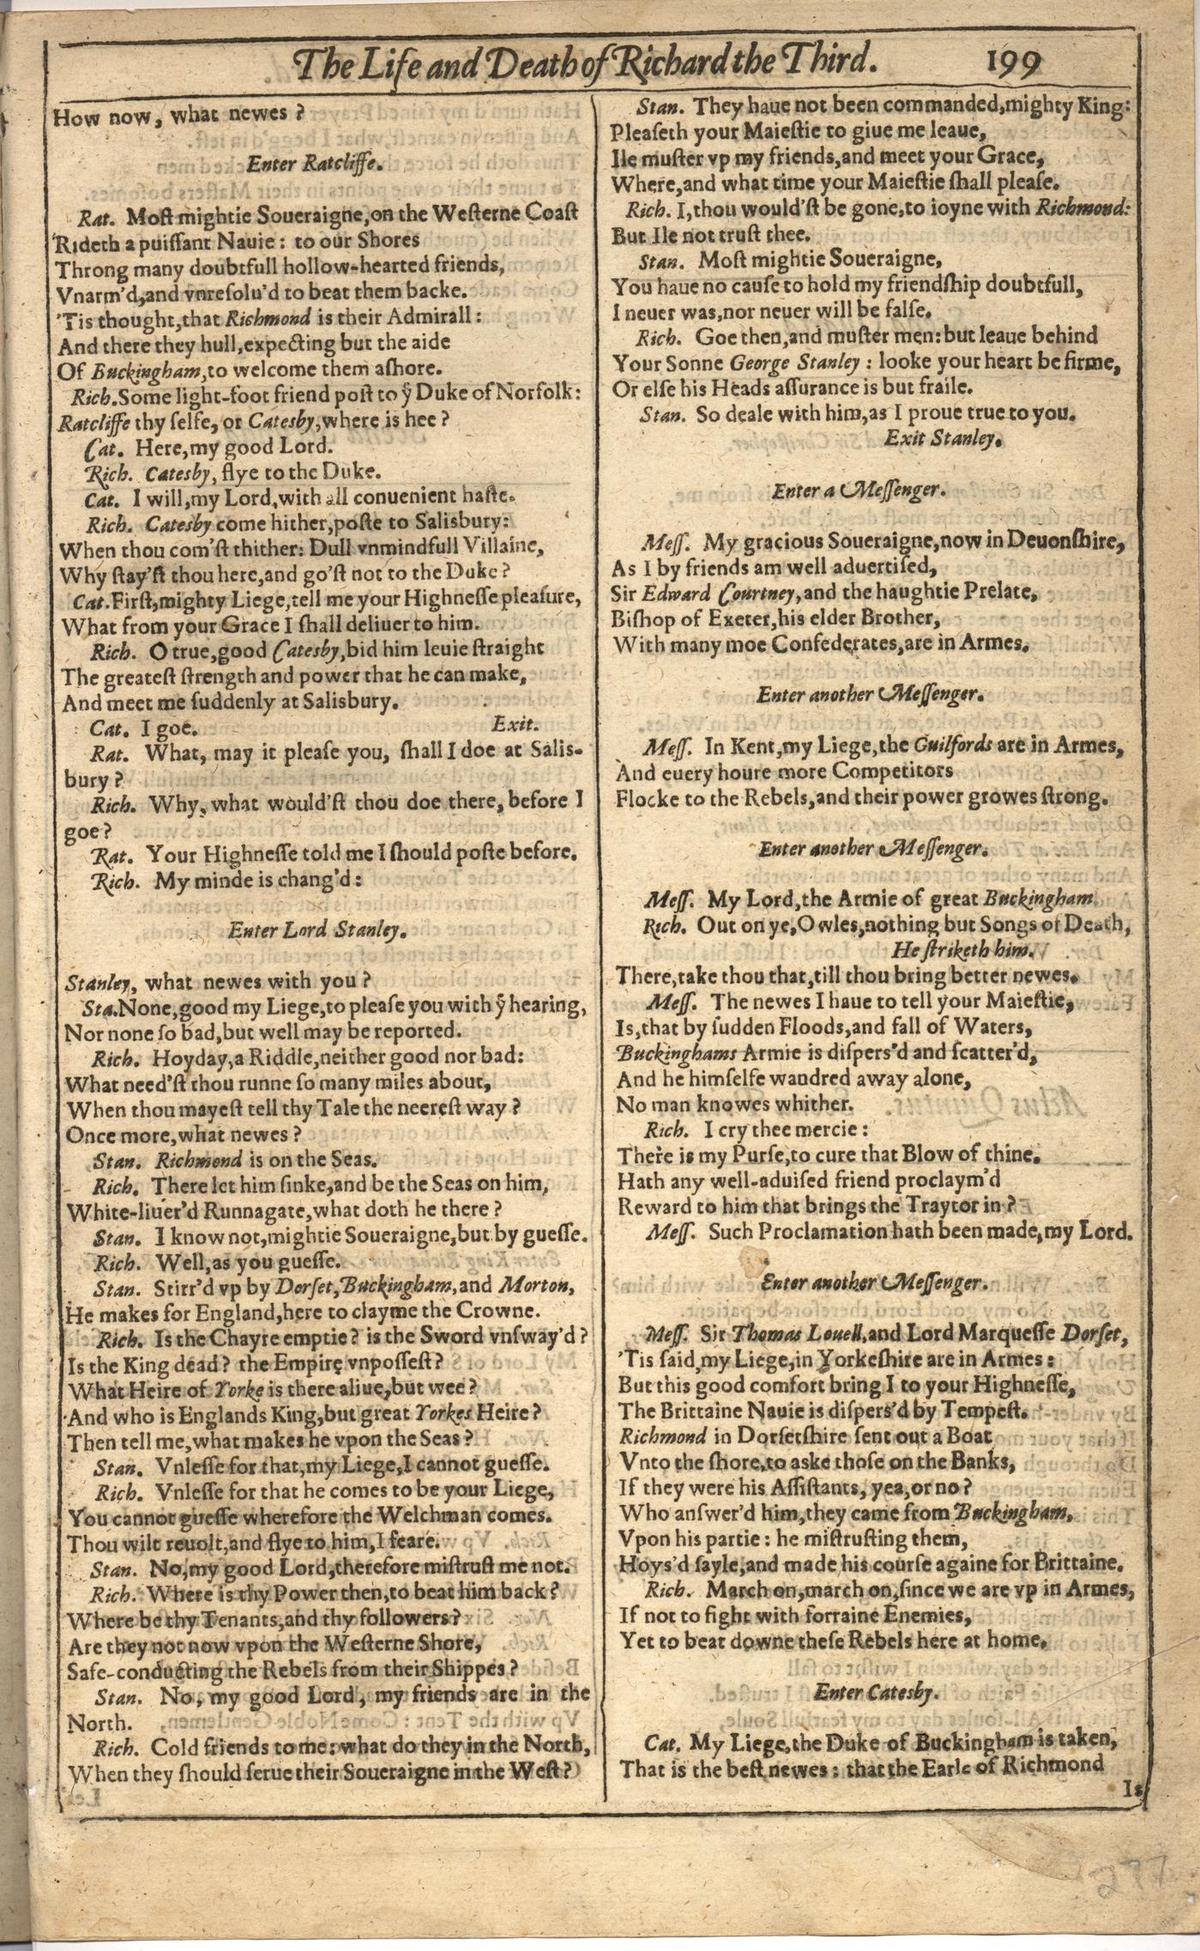 The Life and Death of Richard the Third. 199
How now, what newes?
Enter Ratcliffe.
Rat. Moſt mightie Soueraigne, on the Weſterne Coaſt
Rideth a puiſſant Nauie: to our Shores
Throng many doubtfull hollow-hearted friends,
Vnarm'd, and vnreſolu'd to beat them backe.
'Tis thought, that Richmond is their Admirall:
And there they hull, expecting but the aide
Of Buckingham, to welcome them aſhore.
Rich. Some light-foot friend poſt to ẙ Duke of Norfolk:
Ratcliffe thy ſelfe, or Catesby, where is hee?
Cat. Here, my good Lord.
Rich. Catesby, flye to the Duke.
Cat. I will, my Lord, with all conuenient haſte.
Rich. Catesby come hither, poſte to Salisbury:
When thou com'ſt thither: Dull vnmindfull Villaine,
Why ſtay'ſt thou here, and go'ſt not to the Duke?
Cat. Firſt, mighty Liege, tell me your Highneſſe pleaſure,
What from your Grace I ſhall deliuer to him.
Rich. O true, good Catesby, bid him leuie ſtraight
The greateſt ſtrength and power that he can make,
And meet me ſuddenly at Salisbury.
Cat. I goe. Exit.
Rat. What, may it pleaſe you, ſhall I doe at Salis-
bury?
Rich. Why, what would'ſt thou doe there, before I
goe?
Rat. Your Highneſſe told me I ſhould poſte before.
Rich. My minde is chang'd:
Enter Lord Stanley.
Stanley, what newes with you?
Sta. None, good my Liege, to pleaſe you with ẙ hearing,
Nor none ſo bad, but well may be reported.
Rich. Hoyday, a Riddle, neither good nor bad:
What need'ſt thou runne ſo many miles about,
When thou mayeſt tell thy Tale the neereſt way?
Once more, what newes?
Stan. Richmond is on the Seas.
Rich. There let him ſinke, and be the Seas on him,
White-liuer'd Runnagate, what doth he there?
Stan. I know not, mightie Soueraigne, but by gueſſe.
Rich. Well, as you gueſſe.
Stan. Stirr'd vp by Dorſet, Buckingham, and Morton,
He makes for England, here to clayme the Crowne.
Rich. Is the Chayre emptie? is the Sword vnſway'd?
Is the King dead? the Empire vnpoſſeſt?
What Heire of Yorke is there aliue, but wee?
And who is Englands King, but great Yorkes Heire?
Then tell me, what makes he vpon the Seas?
Stan. Vnleſſe for that, my Liege, I cannot gueſſe.
Rich. Vnleſſe for that he comes to be your Liege,
You cannot gueſſe wherefore the Welchman comes.
Thou wilt reuolt, and flye to him, I feare.
Stan. No, my good Lord, therefore miſtruſt me not.
Rich. Where is thy Power then, to beat him back?
Where be thy Tenants, and thy followers?
Are they not now vpon the Weſterne Shore,
Safe-conducting the Rebels from their Shippes?
Stan. No, my good Lord, my friends are in the
North.
Rich. Cold friends to me: what do they in the North,
When they ſhould ſerue their Soueraigne in the Weſt?
Stan. They haue not been commanded, mighty King:
Pleaſeth your Maieſtie to giue me leaue,
Ile muſter vp my friends, and meet your Grace,
Where, and what time your Maieſtie ſhall pleaſe.
Rich. I, thou would'ſt be gone, to ioyne with Richmond:
But Ile not truſt thee.
Stan. Moſt mightie Soueraigne,
You haue no cauſe to hold my friendſhip doubtfull,
I neuer was, nor neuer will be falſe.
Rich. Goe then, and muſter men: but leaue behind
Your Sonne George Stanley: looke your heart be firme,
Or elſe his Heads aſſurance is but fraile.
Stan. So deale with him, as I proue true to you.
Exit Stanley.
Enter a Meſſenger.
Meſſ. My gracious Soueraigne, now in Deuonſhire,
As I by friends am well aduertiſed,
Sir Edward Courtney, and the haughtie Prelate,
Biſhop of Exeter, his elder Brother,
With many moe Confederates, are in Armes.
Enter another Meſſenger.
Meſſ. In Kent, my Liege, the Guilfords are in Armes,
And euery houre more Competitors
Flocke to the Rebels, and their power growes ſtrong.
Enter another Meſſenger.
Meſſ. My Lord, the Armie of great Buckingham
Rich. Out on ye, Owles, nothing but Songs of Death,
He ſtriketh him.
There, take thou that, till thou bring better newes.
Meſſ. The newes I haue to tell your Maieſtie,
Is, that by ſudden Floods, and fall of Waters,
Buckinghams Armie is diſpers'd and ſcatter'd,
And he himſelfe wandred away alone,
No man knowes whither.
Rich. I cry thee mercie:
There is my Purſe, to cure that Blow of thine.
Hath any well-aduiſed friend proclaym'd
Reward to him that brings the Traytor in?
Meſſ. Such Proclamation hath been made, my Lord.
Enter another Meſſenger.
Meſſ. Sir Thomas Louell, and Lord Marqueſſe Dorſet,
'Tis ſaid, my Liege, in Yorkeſhire are in Armes:
But this good comfort bring I to your Highneſſe,
The Brittaine Nauie is diſpers'd by Tempeſt.
Richmond in Dorſetſhire ſent out a Boat
Vnto the ſhore, to aske thoſe on the Banks,
If they were his Aſſiſtants, yea, or no?
Who anſwer'd him, they came from Buckingham,
Vpon his partie: he miſtruſting them,
Hoys'd ſayle, and made his courſe againe for Brittaine.
Rich. March on, march on, ſince we are vp in Armes,
If not to fight with forraine Enemies,
Yet to beat downe theſe Rebels here at home.
Enter Catesby.
Cat. My Liege, the Duke of Buckingham is taken,
That is the beſt newes: that the Earle of Richmond
Is
277